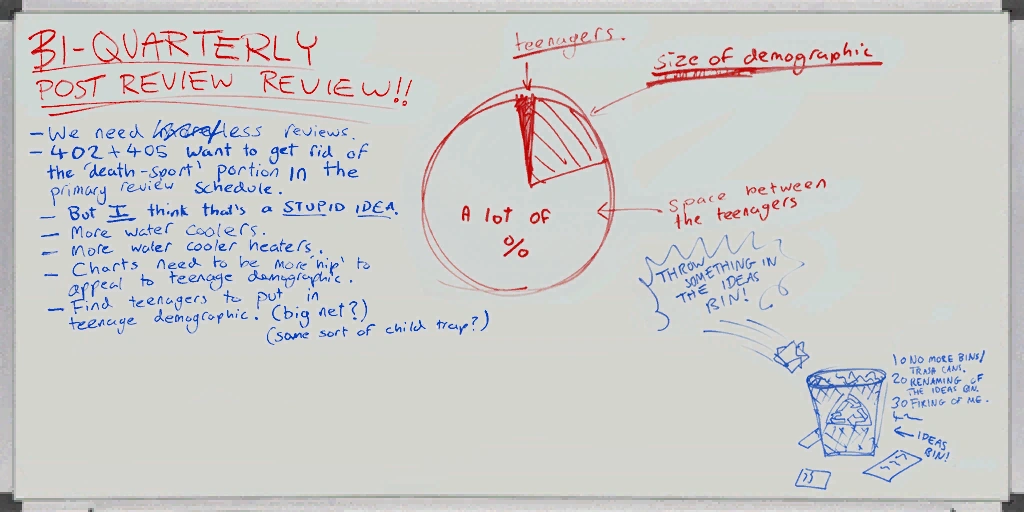 BI-QUARTERLY
POST REVIEW REVIEW!!
- We need less reviews.
- 402 + 405 want to get rid of
the 'death-sport' portion in the
primary review schedule.
- But I think that's a STUPID IDEA.
- More water coolers.
- More water cooler heaters.
- Charts need to be more 'hip' to
appeal to teenage demographic.
- Find teenagers to put in
teenage demographic. (big net?)
(some sort of child trap?)
teenagers.
size of demographic
A lot of
%
space between
the teenagers
THROW
SOMETHING IN
THE IDEAS
BIN!
10 NO MORE BINS/
TRASH CANS.
20 RENAMING OF
THE IDEAS BIN.
30 FIRING OF ME.
IDEAS
BIN!